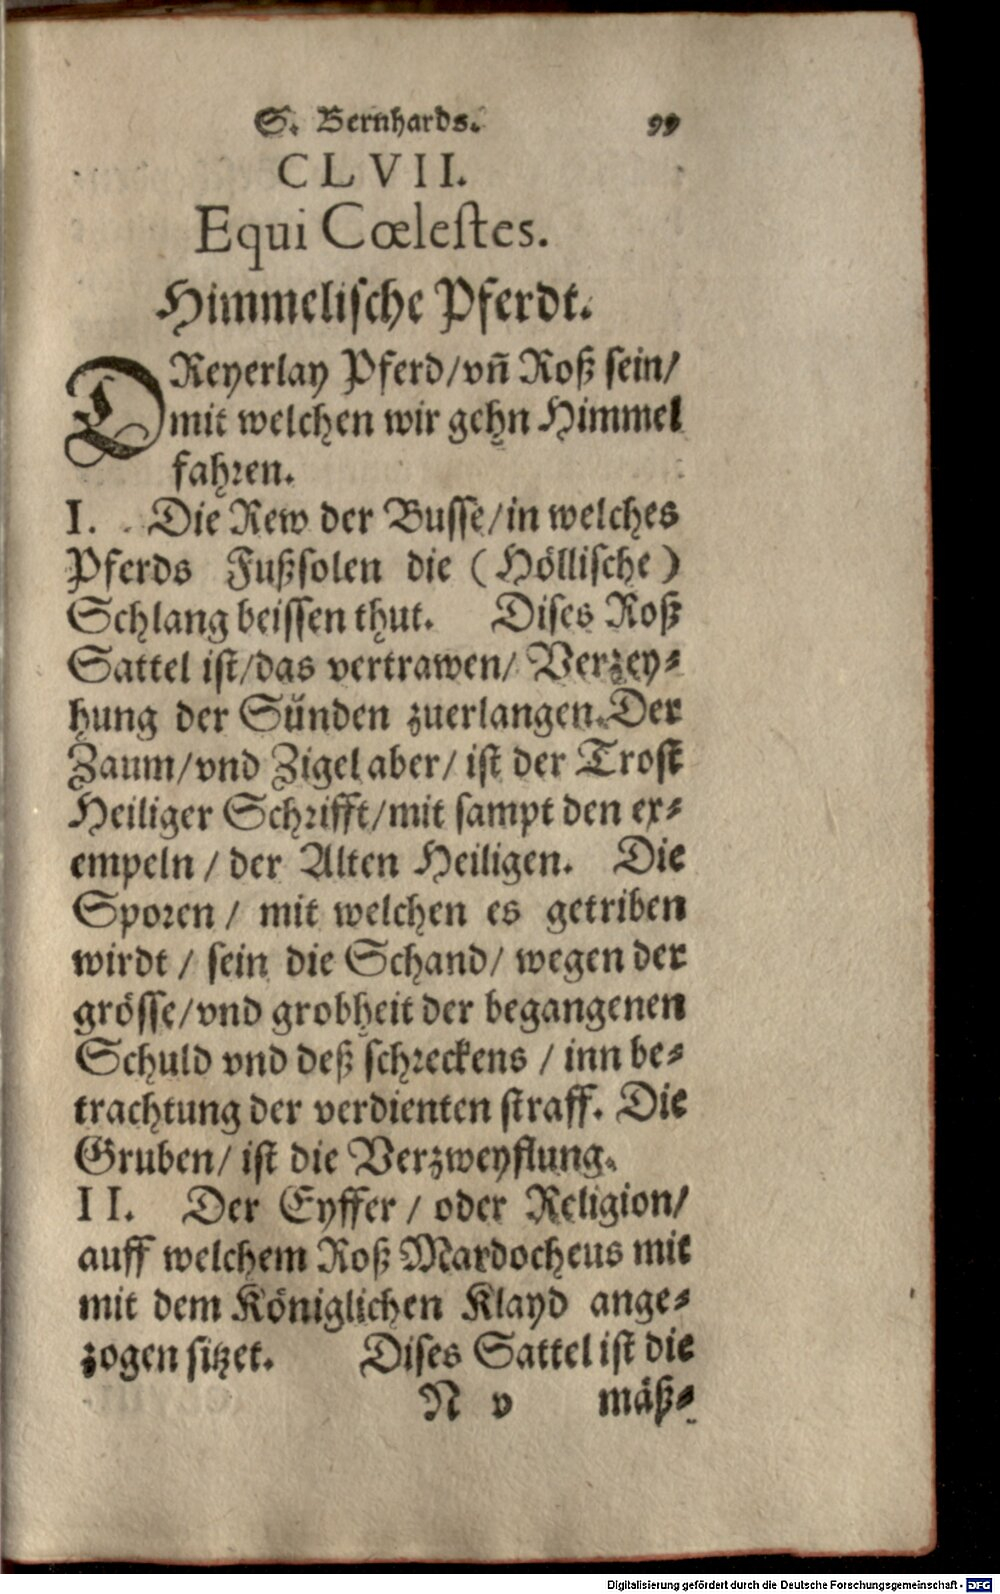 S. Bernhards. 99
CLVII.
Equi Cœlestes.
Himmelische Pferdt.
DReyerlay Pferd/vñ Roß sein/
mit welchen wir gehn Himmel
fahren.
I. Die Rew der Busse/in welches
Pferds Fußsolen die (Höllische)
Schlang beissen thut. Dises Roß
Sattel ist/das vertrawen/ Verzey-
hung der Sünden zuerlangen. Der
Zaum/vnd Zigel aber/ ist der Trost
Heiliger Schrifft/mit sampt den ex-
empeln / der Alten Heiligen. Die
Sporen / mit welchen es getriben
wirdt / sein die Schand/ wegen der
grösse/vnd grobheit der begangenen
Schuld vnd deß schreckens / inn be-
trachtung der verdienten straff. Die
Gruben/ ist die Verzweyflung.
II. Der Eyffer / oder Religion/
auff welchem Roß Mardocheus mit
mit dem Königlichen Klayd ange-
zogen sitzet. Dises Sattel ist die
N v mäß-
Digitalisierung gefördert durch die Deutsche Forschungsgemeinschaft - DFG